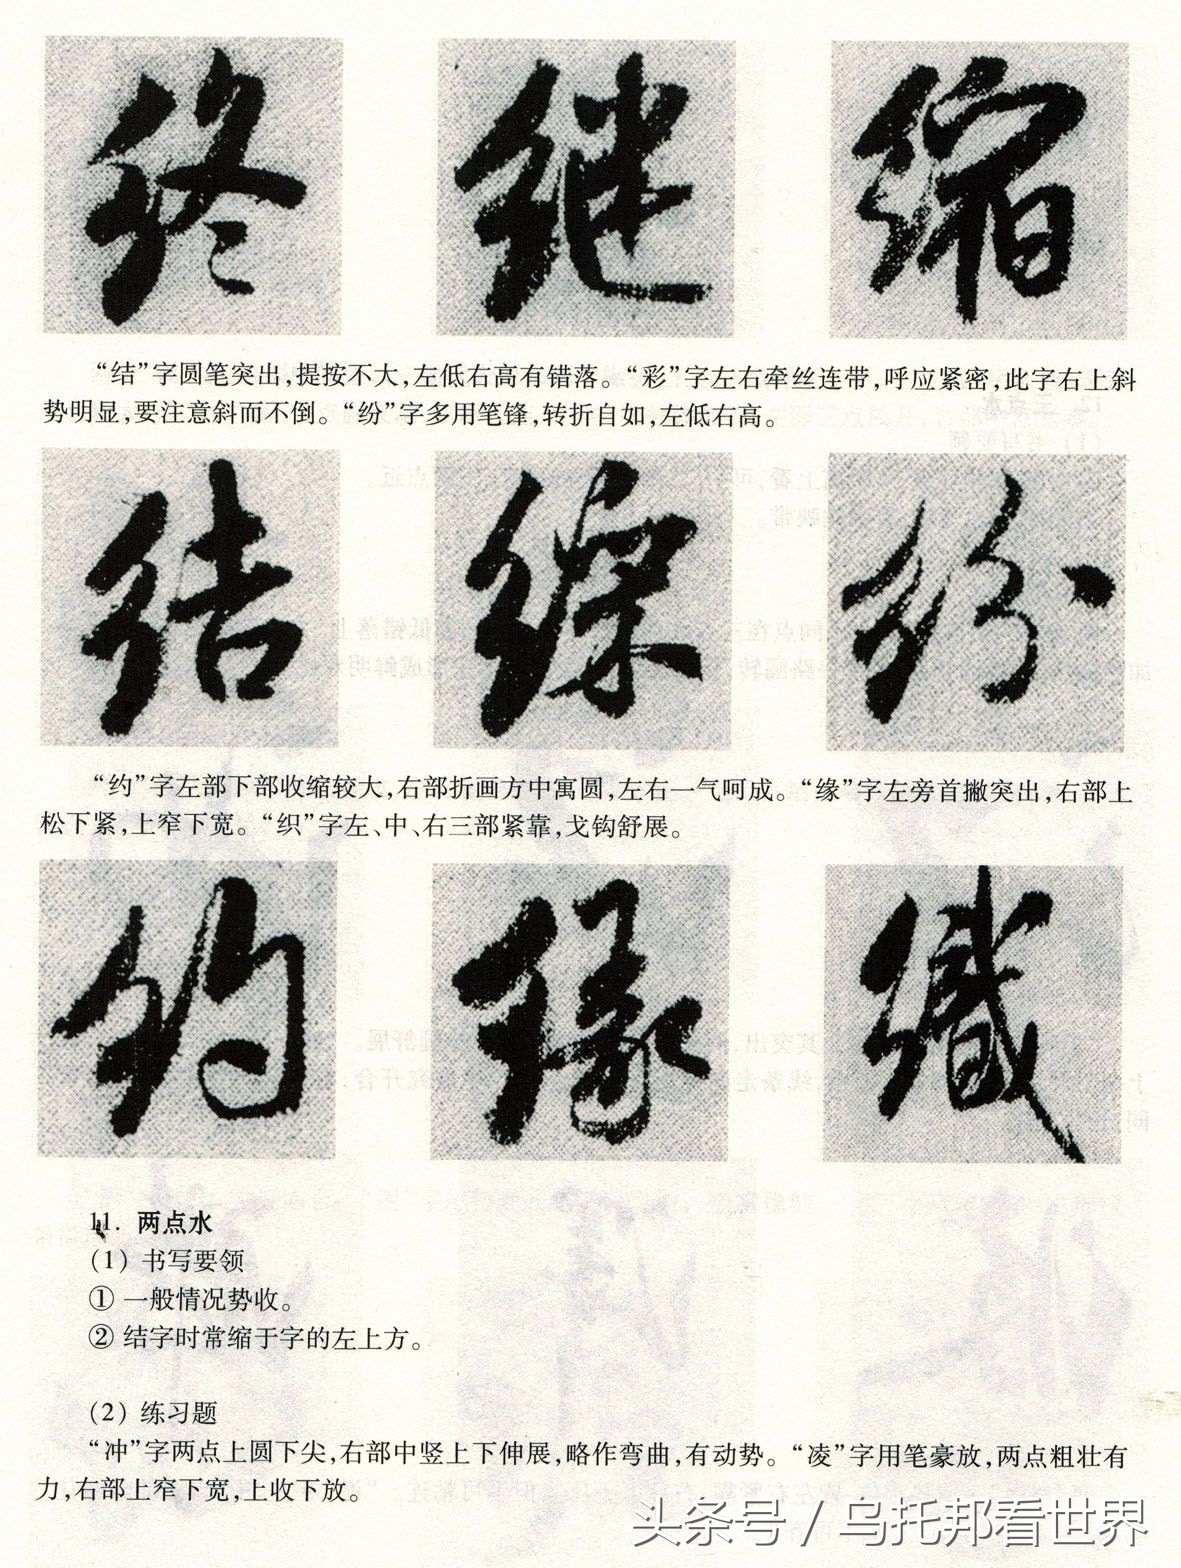 终 继 缩
“结”字圆笔突出,提按不大,左低右高有错落。“彩”字左右牵丝连带,呼应紧密,此字右上斜
势明显,要注意斜而不倒。“纷”字多用笔锋,转折自如,左低右高。
结 纷
“约”字左部下部收缩较大,右部折画方中寓圆,左右一气呵成。“缘”字左旁首撇突出,右部上
松下紧,上窄下宽。“织”字左、中、右三部紧靠,戈钩舒展。
约 缘 織
11. 两点水
(1) 书写要领
① 一般情况势收。
② 结字时常缩于字的左上方。
(2) 练习题
“冲”字两点上圆下尖,右部中竖上下伸展,略作弯曲,有动势。“凌”字用笔豪放,两点粗壮有
力,右部上窄下宽,上收下放。
头条号 / 乌托邦看世界